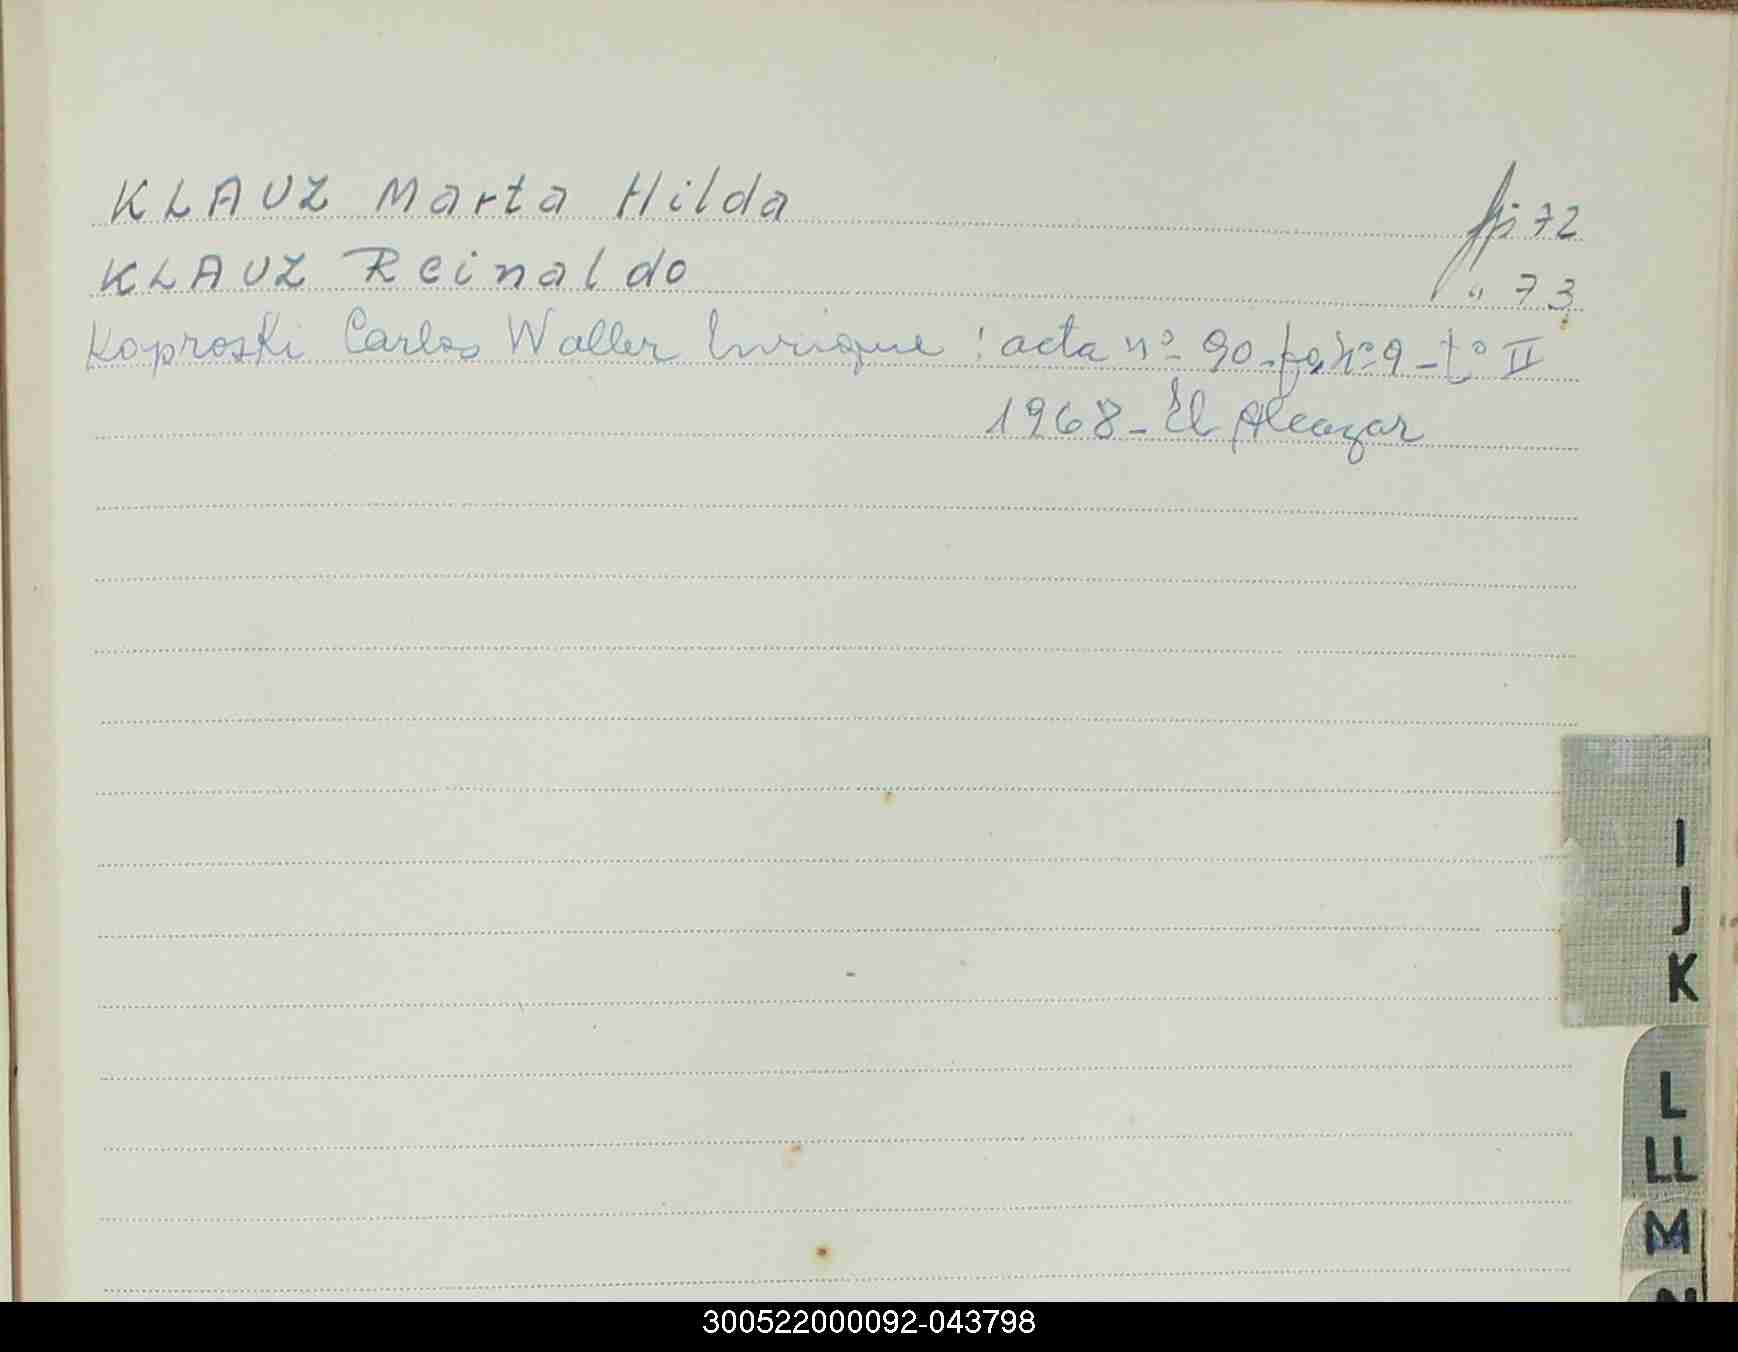 KLAUZ Marta Hilda fj 72
KLAUZ Reinaldo " 73
Koproski Carlos Walter Enrique : acta nº 90 - fo, nº 9 - tº II
1968 - El Alcazar
I
J
K
L
LL
M
N
300522000092-043798